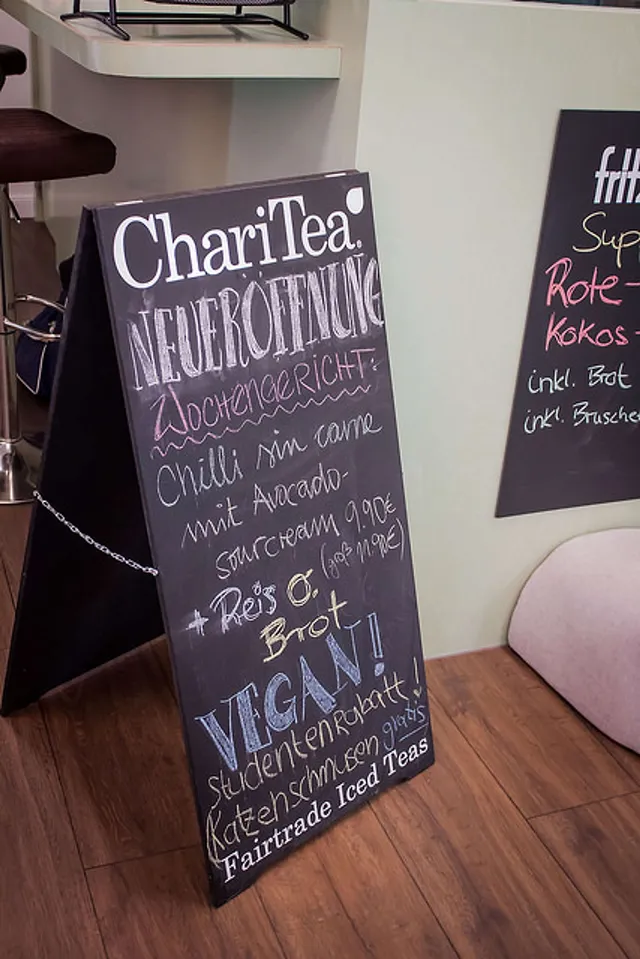 ChariTea
NEUERÖFFNUNG
WOCHENGERICHT:
Chilli sin carne
mit Avocado-
sourcream 9.90€
(groß 11.90€)
+ Reis o.
Brot
VEGAN!
studentenRabatt!
Katzenschmusen gratis
Fairtrade Iced Teas
fritz
Sup
Rote-
Kokos-
inkl. Brot
inkl. Brusche